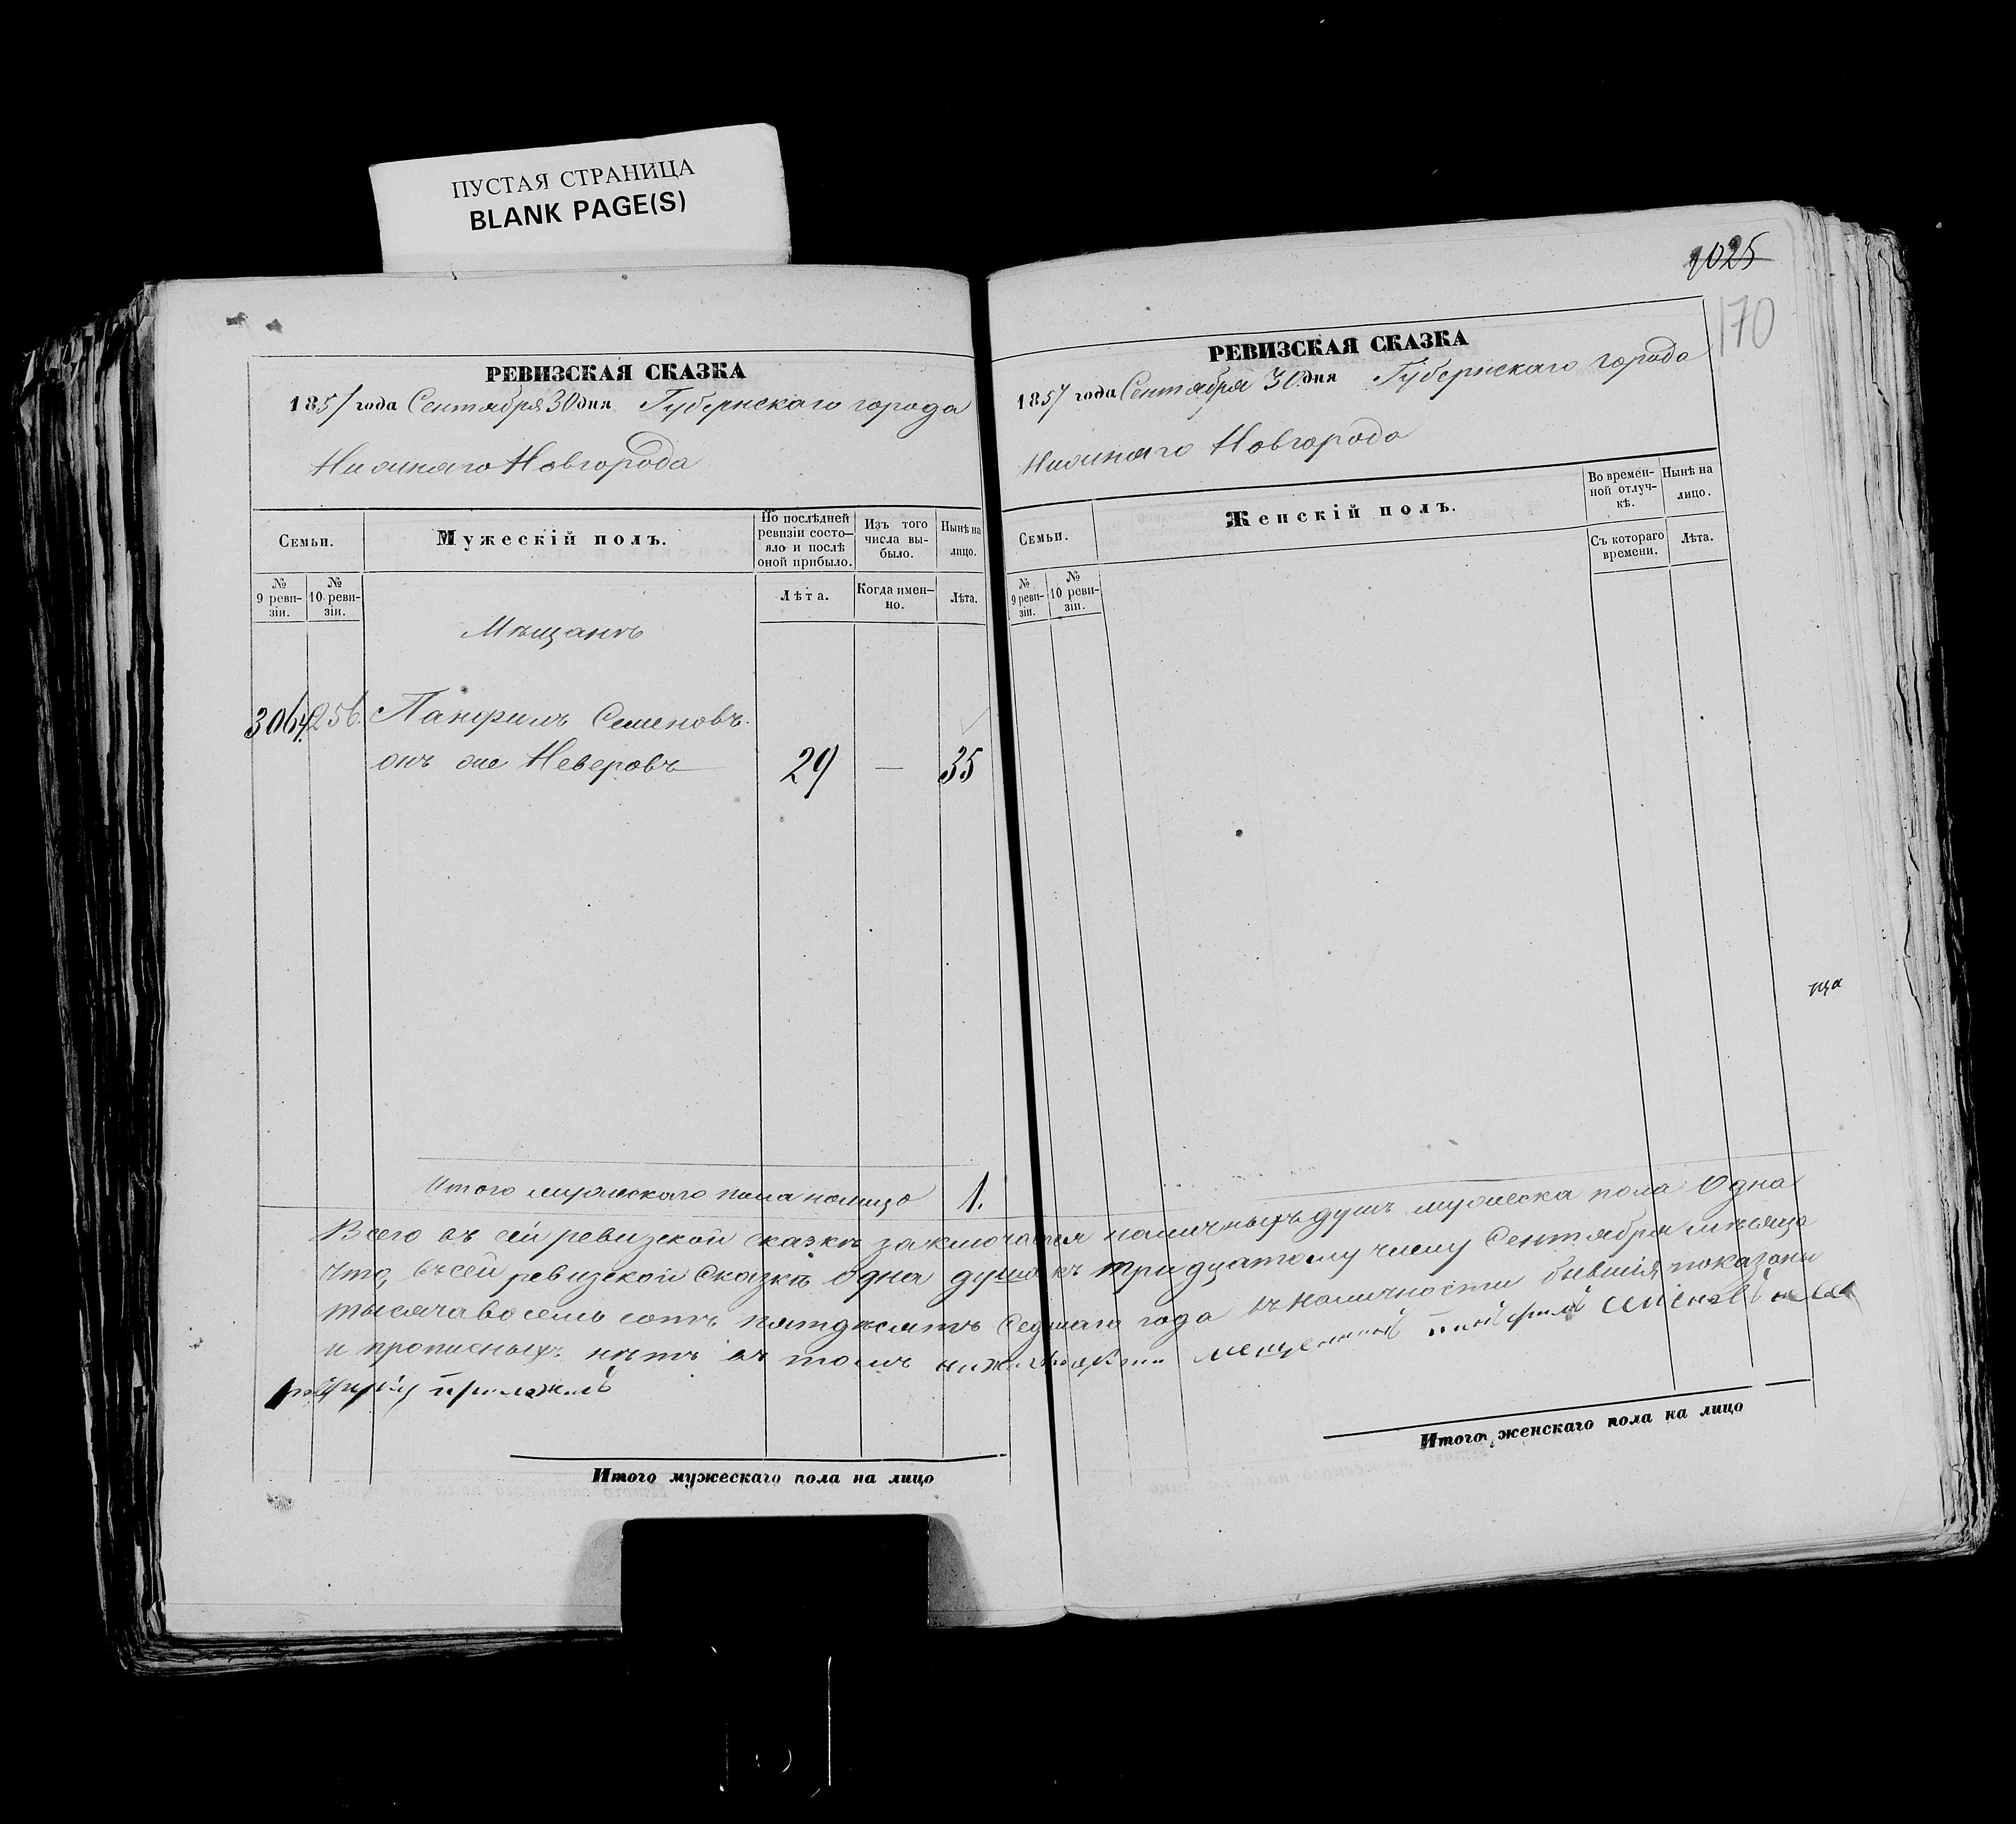 ПУСТАЯ СТРАНИЦА
BLANK PAGE(S)
РЕВИЗСКАЯ СКАЗКА
1857 года Сентября 30 дня Губернскаго города
Нижняго Новгорода
Семьи.
Мужескій полъ.
По послѣдней ревизіи состо-
яло и послѣ оной прибыло.
Изъ того числа вы-
было.
Нынѣ на лицо.
№ 9 реви-
зіи.
№ 10 реви-
зіи.
Лѣта.
Когда имен-
но.
Лѣта.
Мѣщанъ
3064 256. Панфилъ Семеновъ.
онъ же Неверовъ 29 — 35
Итого мужескаго пола налицо 1.
1025
170
РЕВИЗСКАЯ СКАЗКА
1857 года Сентября 30 дня Губернскаго города
Нижняго Новгорода
Семьи.
Женскій полъ.
Во времен-
ной отлуч-
кѣ.
Нынѣ на
лицо.
№ 9 реви-
зіи.
№ 10 реви-
зіи.
Съ котораго
времени.
Лѣта.
ща
Всего въ сей ревизской сказкѣ заключается наличныхъ душъ мужеска пола Одна
что въ сей ревизской Сказкѣ Одна душа къ тридцатому числу Сентября мѣсяца
тысяча восемь сотъ пятдесятъ Седмаго года въ наличности бывшія показаны
и прописныхъ нѣтъ въ томъ Семеновъ
приложилъ
Итого мужескаго пола на лицо
Итого женскаго пола на лицо